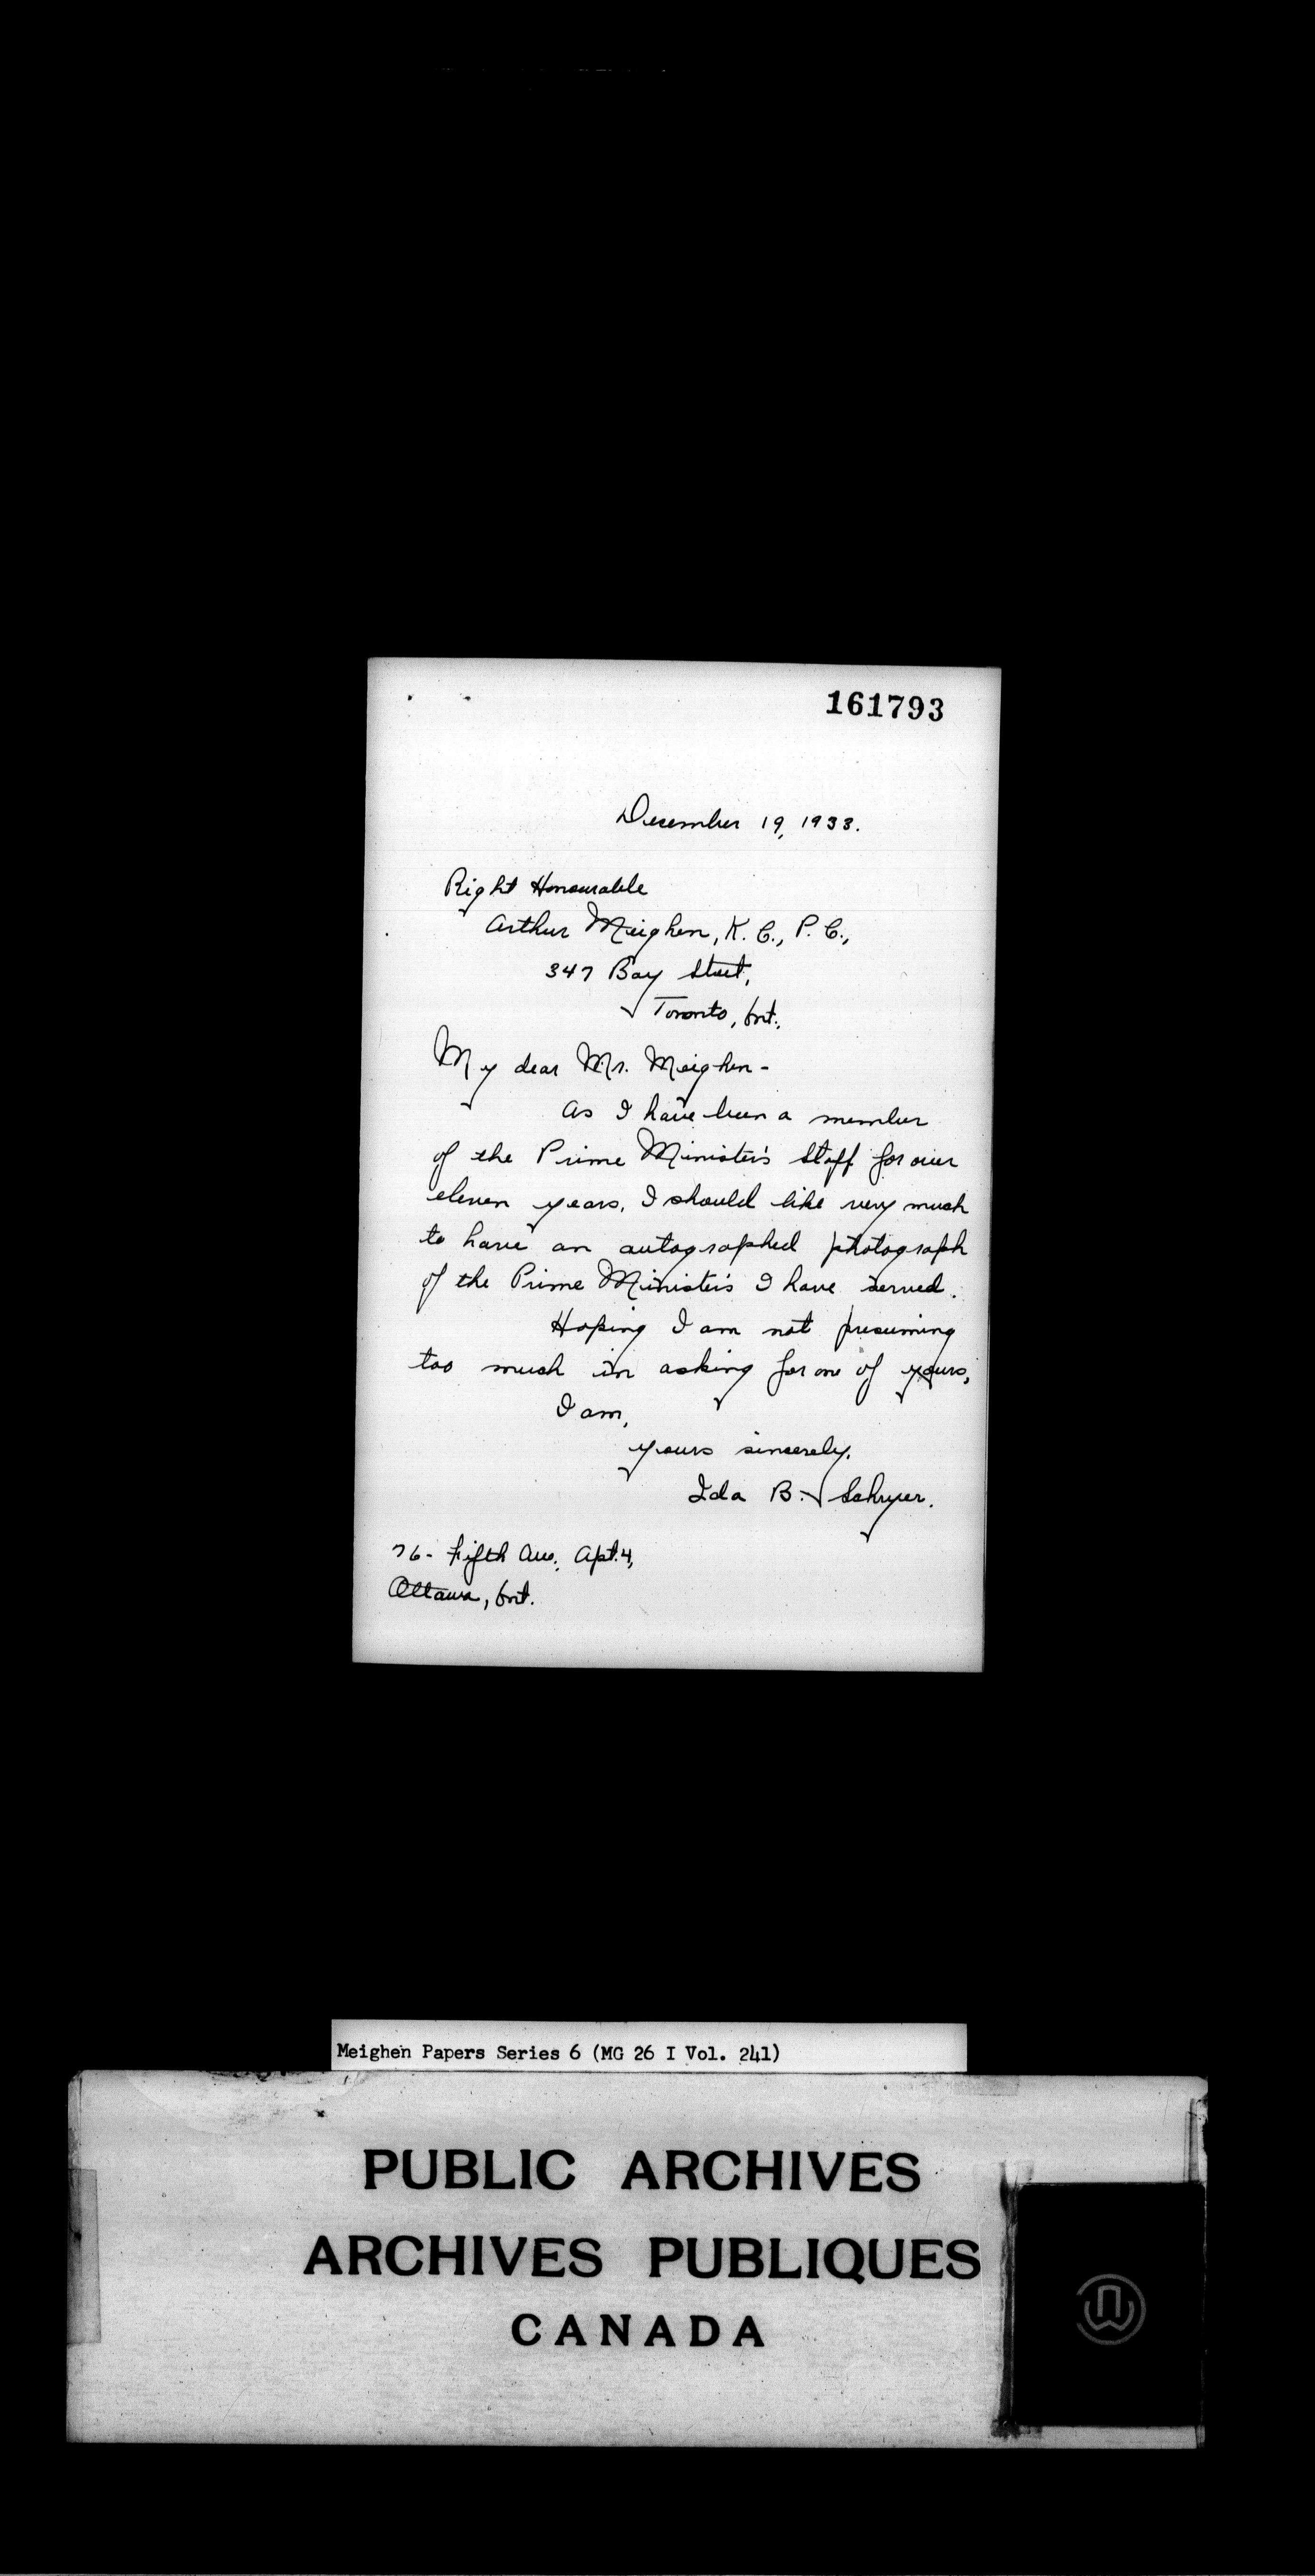 161793
December 19, 1933.
Right Honourable
Arthur Meighen, K. C., P. C.,
347 Bay Street,
Toronto, Ont.,
My dear Mr. Meighen-
As I have been a member
of the Prime Minister's Staff for over
eleven years, I should like very much
to have an autographed photograph
of the Prime Minister's I have served.
Hoping I am not presuming
too much in asking for one of yours,
I am,
yours sincerely,
Ida B. Schryer.
76- Fifth Ave., Apt. 4,
Ottawa, Ont.
Meighen Papers Series 6 (MG 26 I Vol. 241)
PUBLIC ARCHIVES
ARCHIVES PUBLIQUES
CANADA